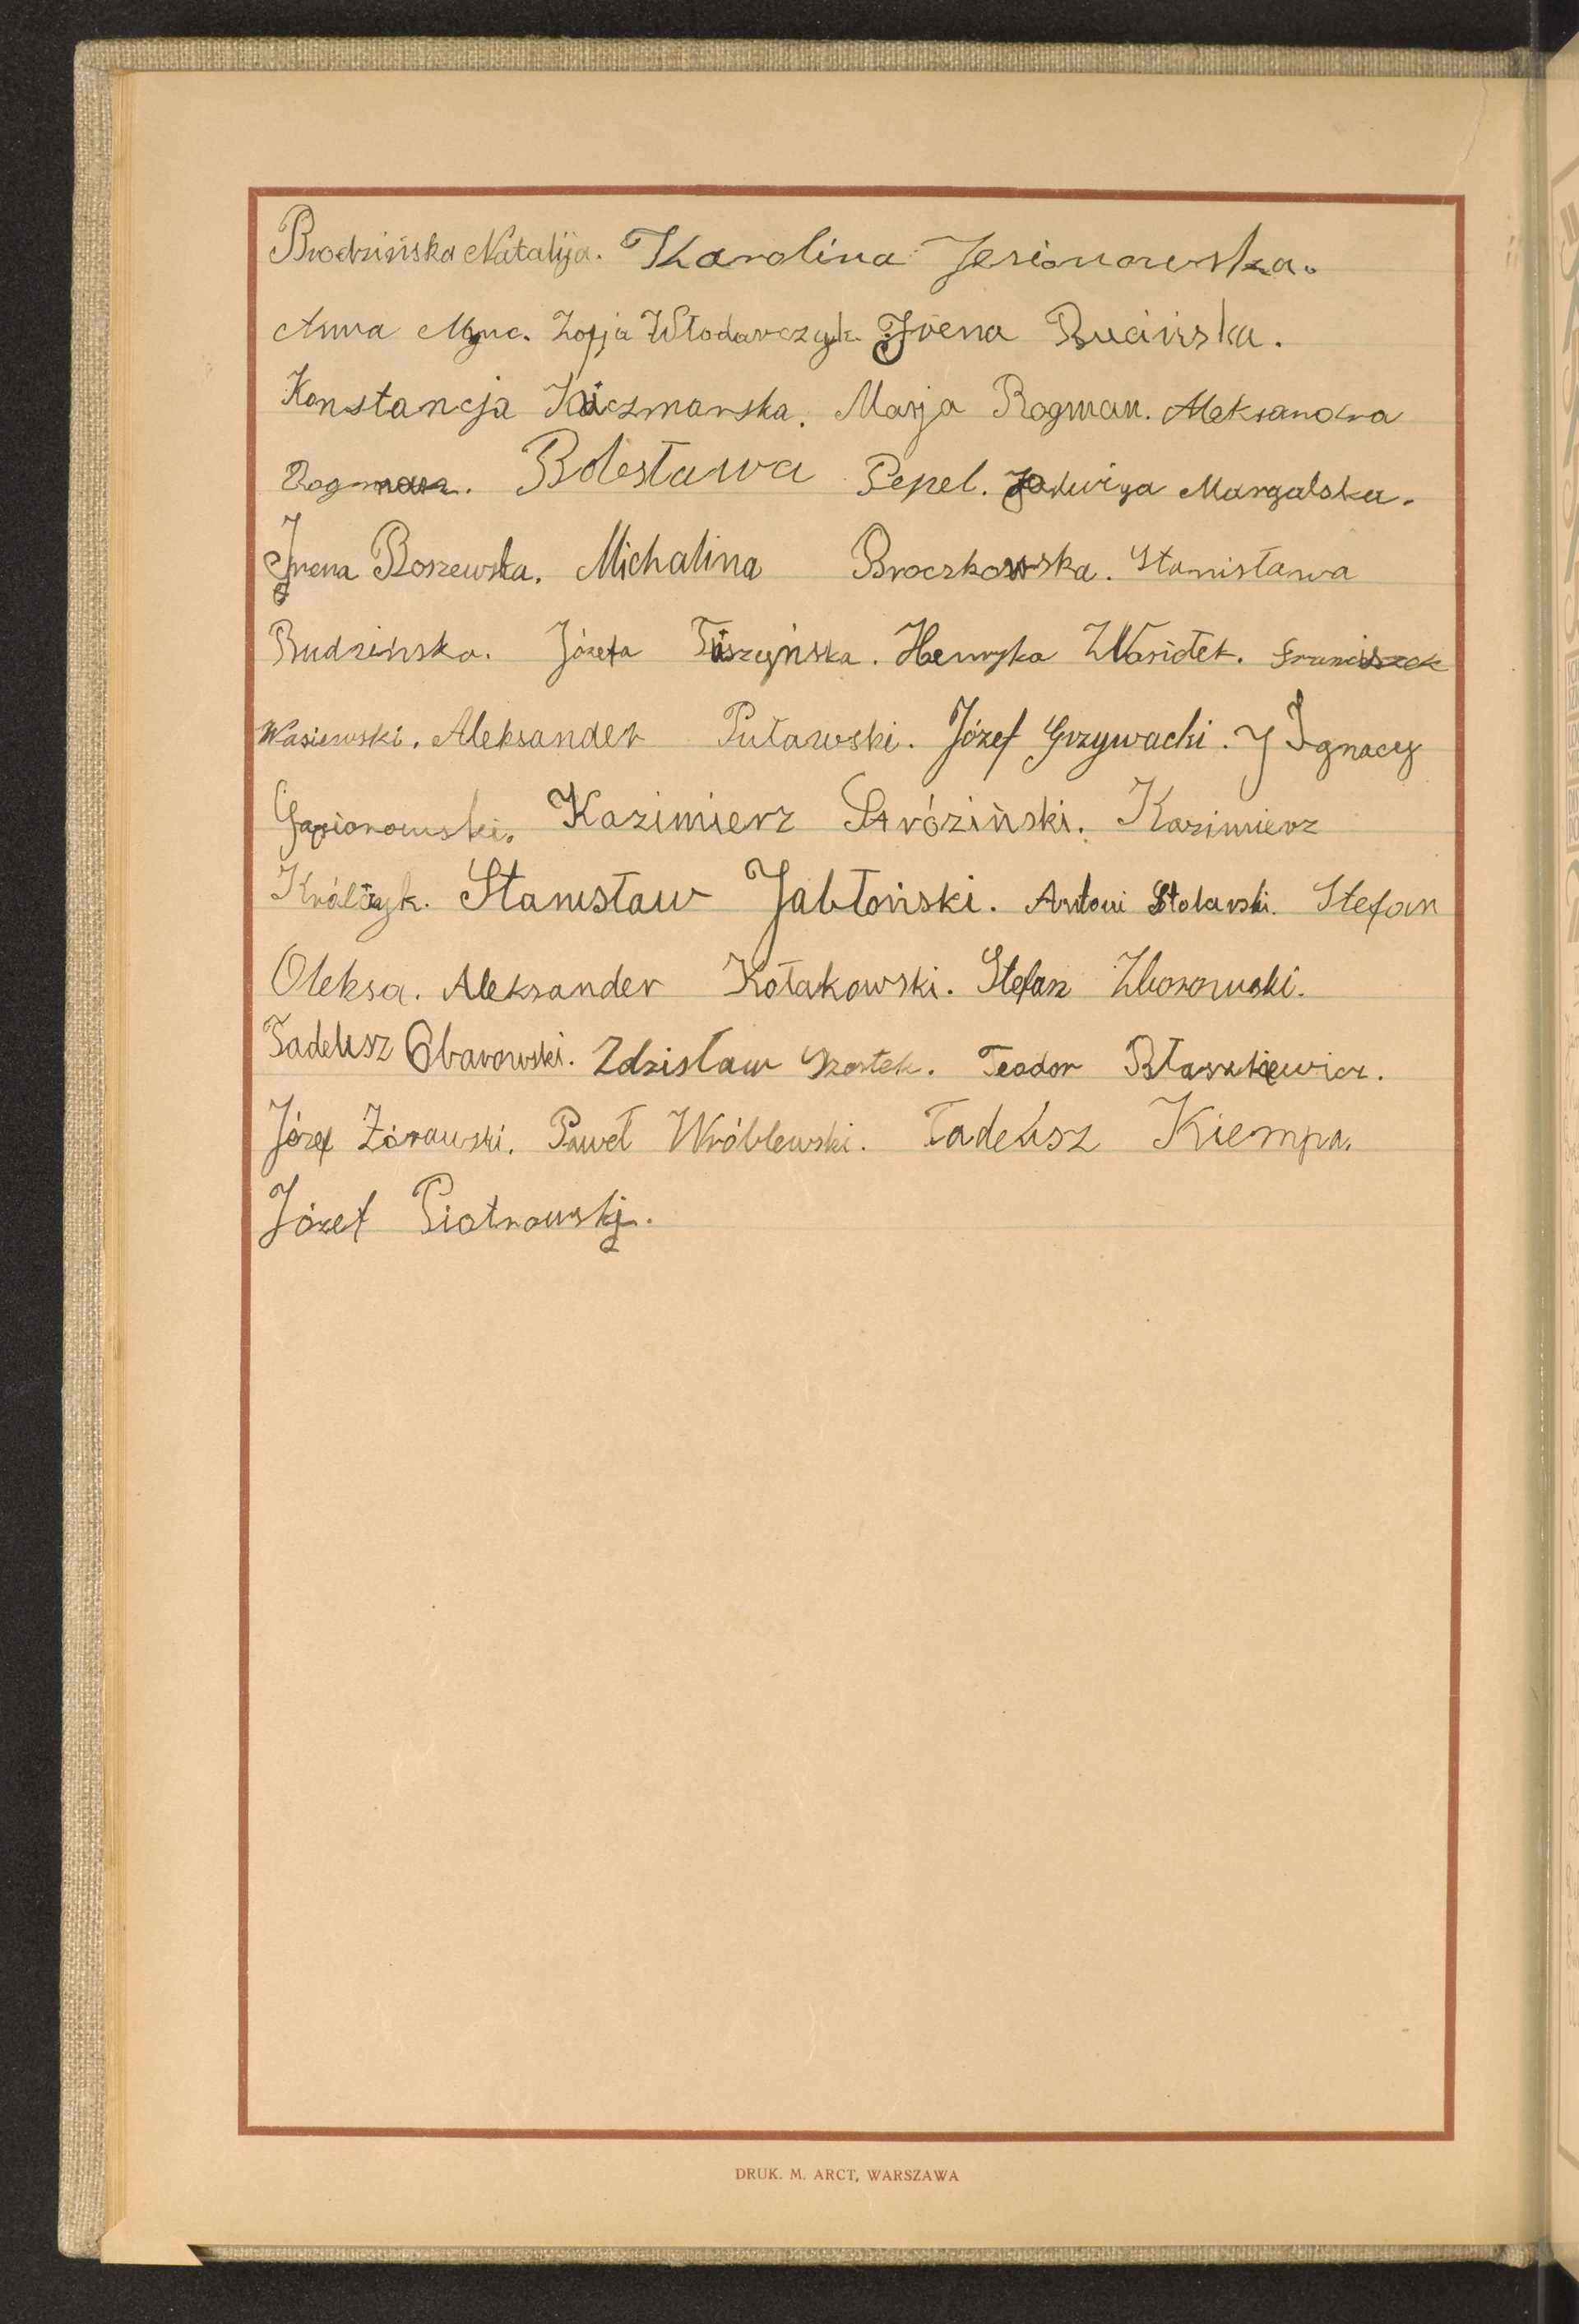 Brodzińska Natalija. Karolina Jesionowska.
Anna Myna. Zofja Włodarczyk. Irena Bucińska.
Konstancja Kaczmarska. Marja Rogman. Aleksandra
Rogman. Bolesława Pepel. Jadwiga Margalska.
Irena Roszewska. Michalina Broczkowska. Stanisława
Budzińska. Józefa Tuszyńska. Henryka Wasiółek. Franciszek
Wasiewski. Aleksander Puławski. Józef Grzywacki. J Ignacy
Kazimierz Stróziński. Kazimierz
Królczyk. Stanisław Jabłoński. Antoni Stolarski. Stefan
Oleksa. Aleksander Kołakowski. Stefan Zborowski.
Tadeusz Obarowski. Zdzisław Szostek. Teodor Błaszkiewicz.
Józef Żórawski. Paweł Wróblewski. Tadeusz Kiempa.
Józef Piotrowski.
DRUK. M. ARCT, WARSZAWA